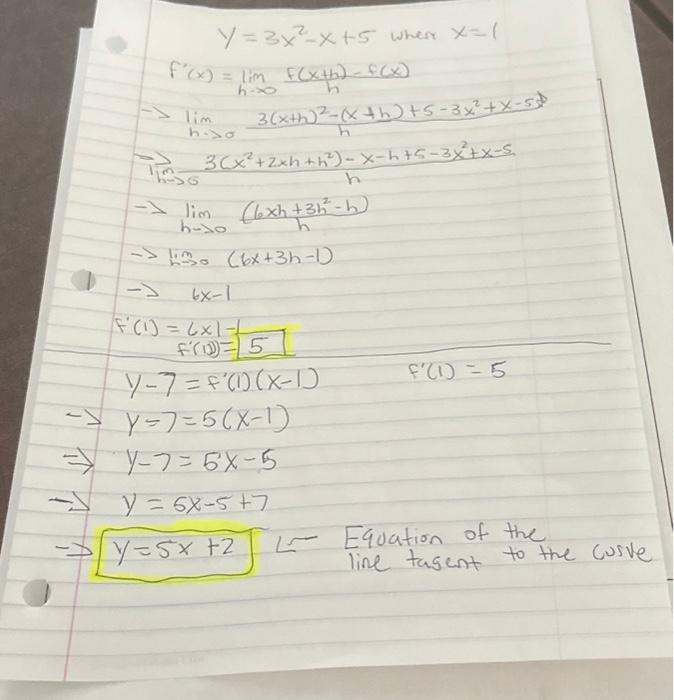 y = 3x² - x + 5 when x = 1
f'(x) = lim h->0 f(x+h) - f(x) / h
-> lim h->0 3(x+h)² - (x+h) + 5 - 3x² + x - 5 / h
=> lim h->0 3(x² + 2xh + h²) - x - h + 5 - 3x² + x - 5 / h
-> lim h->0 (6xh + 3h² - h) / h
-> lim h->0 (6x + 3h - 1)
-> 6x - 1
f'(1) = 6x1 - 1
f'(1) = 5
y - 7 = f'(1)(x - 1) f'(1) = 5
-> y = 7 = 5(x - 1)
=> y - 7 = 5x - 5
-> y = 5x - 5 + 7
-> y = 5x + 2 <- Equation of the
line tagent to the curve